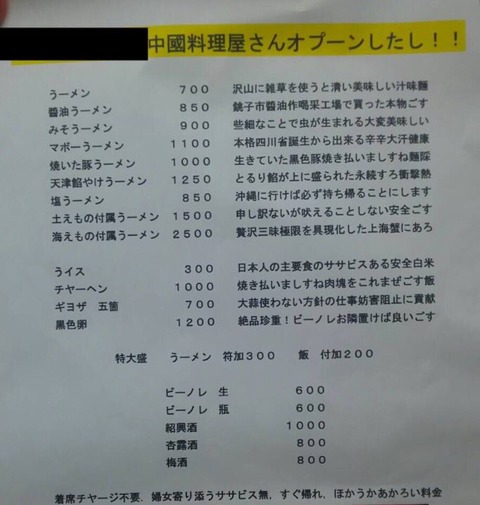 中國料理屋さんオプーンしたし！！
うーメン 700 沢山に雑草を使うと清い美味しい汁味麺
醬油うーメン 850 銚子市醬油作喝采工場で買った本物ごす
みそうーメン 900 些細なことで虫が生まれる大変美味しい
マボーうーメン 1100 本格四川省誕生から出来る辛辛大汗健康
焼いた豚うーメン 1000 生きていた黒色豚焼き払いましすね麵踩
天津餡やけうーメン 1250 とるり餡が上に盛られた永続すろ衝撃熱
塩うーメン 850 沖縄に行けば必ず持ち帰ることにします
土えもの付属うーメン 1500 申し訳ないが吠えることしない安全ごす
海えもの付属うーメン 2500 贅沢三昧極限を具現化した上海蟹にあろ
うイス 300 日本人の主要食のササビスある安全白米
チヤーヘン 1000 焼き払いましすね肉塊をこれまぜごす飯
ギヨザ 五箇 700 大蒜使わない方針の仕事妨害阻止に貢献
黒色卵 1200 絶品珍重！ビーノレお隣置けば良いごす
特大盛 うーメン 符加300 飯 付加200
ビーノレ 生 600
ビーノレ 瓶 600
紹興酒 1000
杏露酒 800
梅酒 800
着席チヤージ不要．婦女寄り添うササビス無．すぐ帰れ．ほかうかあかろい料金